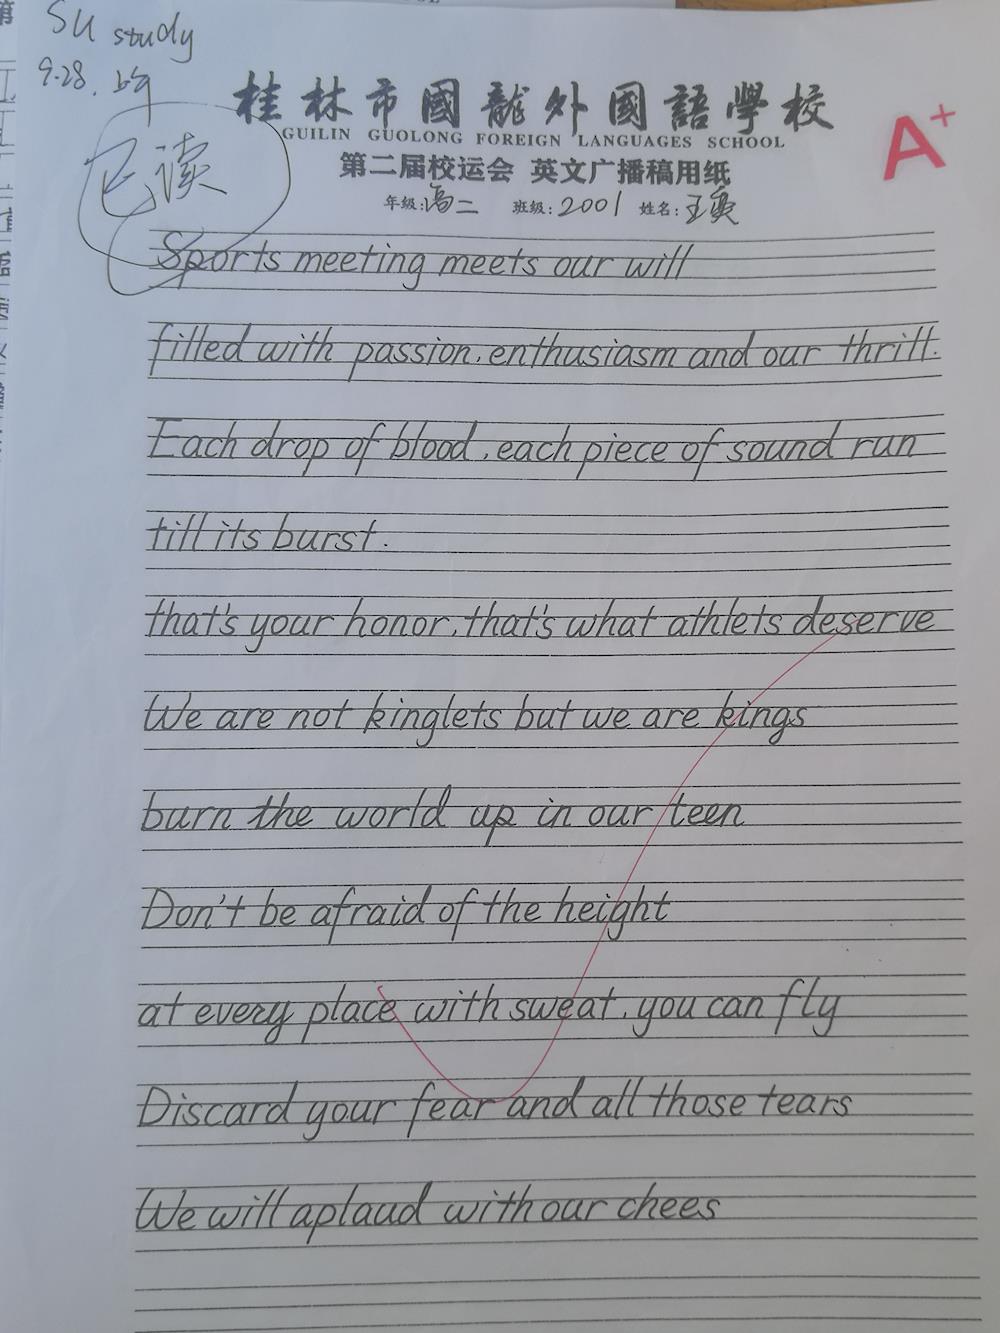 Su study
9.28. 上午
已读
桂林市國龍外國語學校
GUILIN GUOLONG FOREIGN LANGUAGES SCHOOL
A+
第二届校运会 英文广播稿用纸
年级:高二 班级:2001 姓名:王
Sports meeting meets our will
filled with passion, enthusiasm and our thrill.
Each drop of blood, each piece of sound run
till its burst.
that's your honor, that's what athlets deserve
We are not kinglets but we are kings
burn the world up in our teen
Don't be afraid of the height
at every place with sweat, you can fly
Discard your fear and all those tears
We will aplaud with our chees